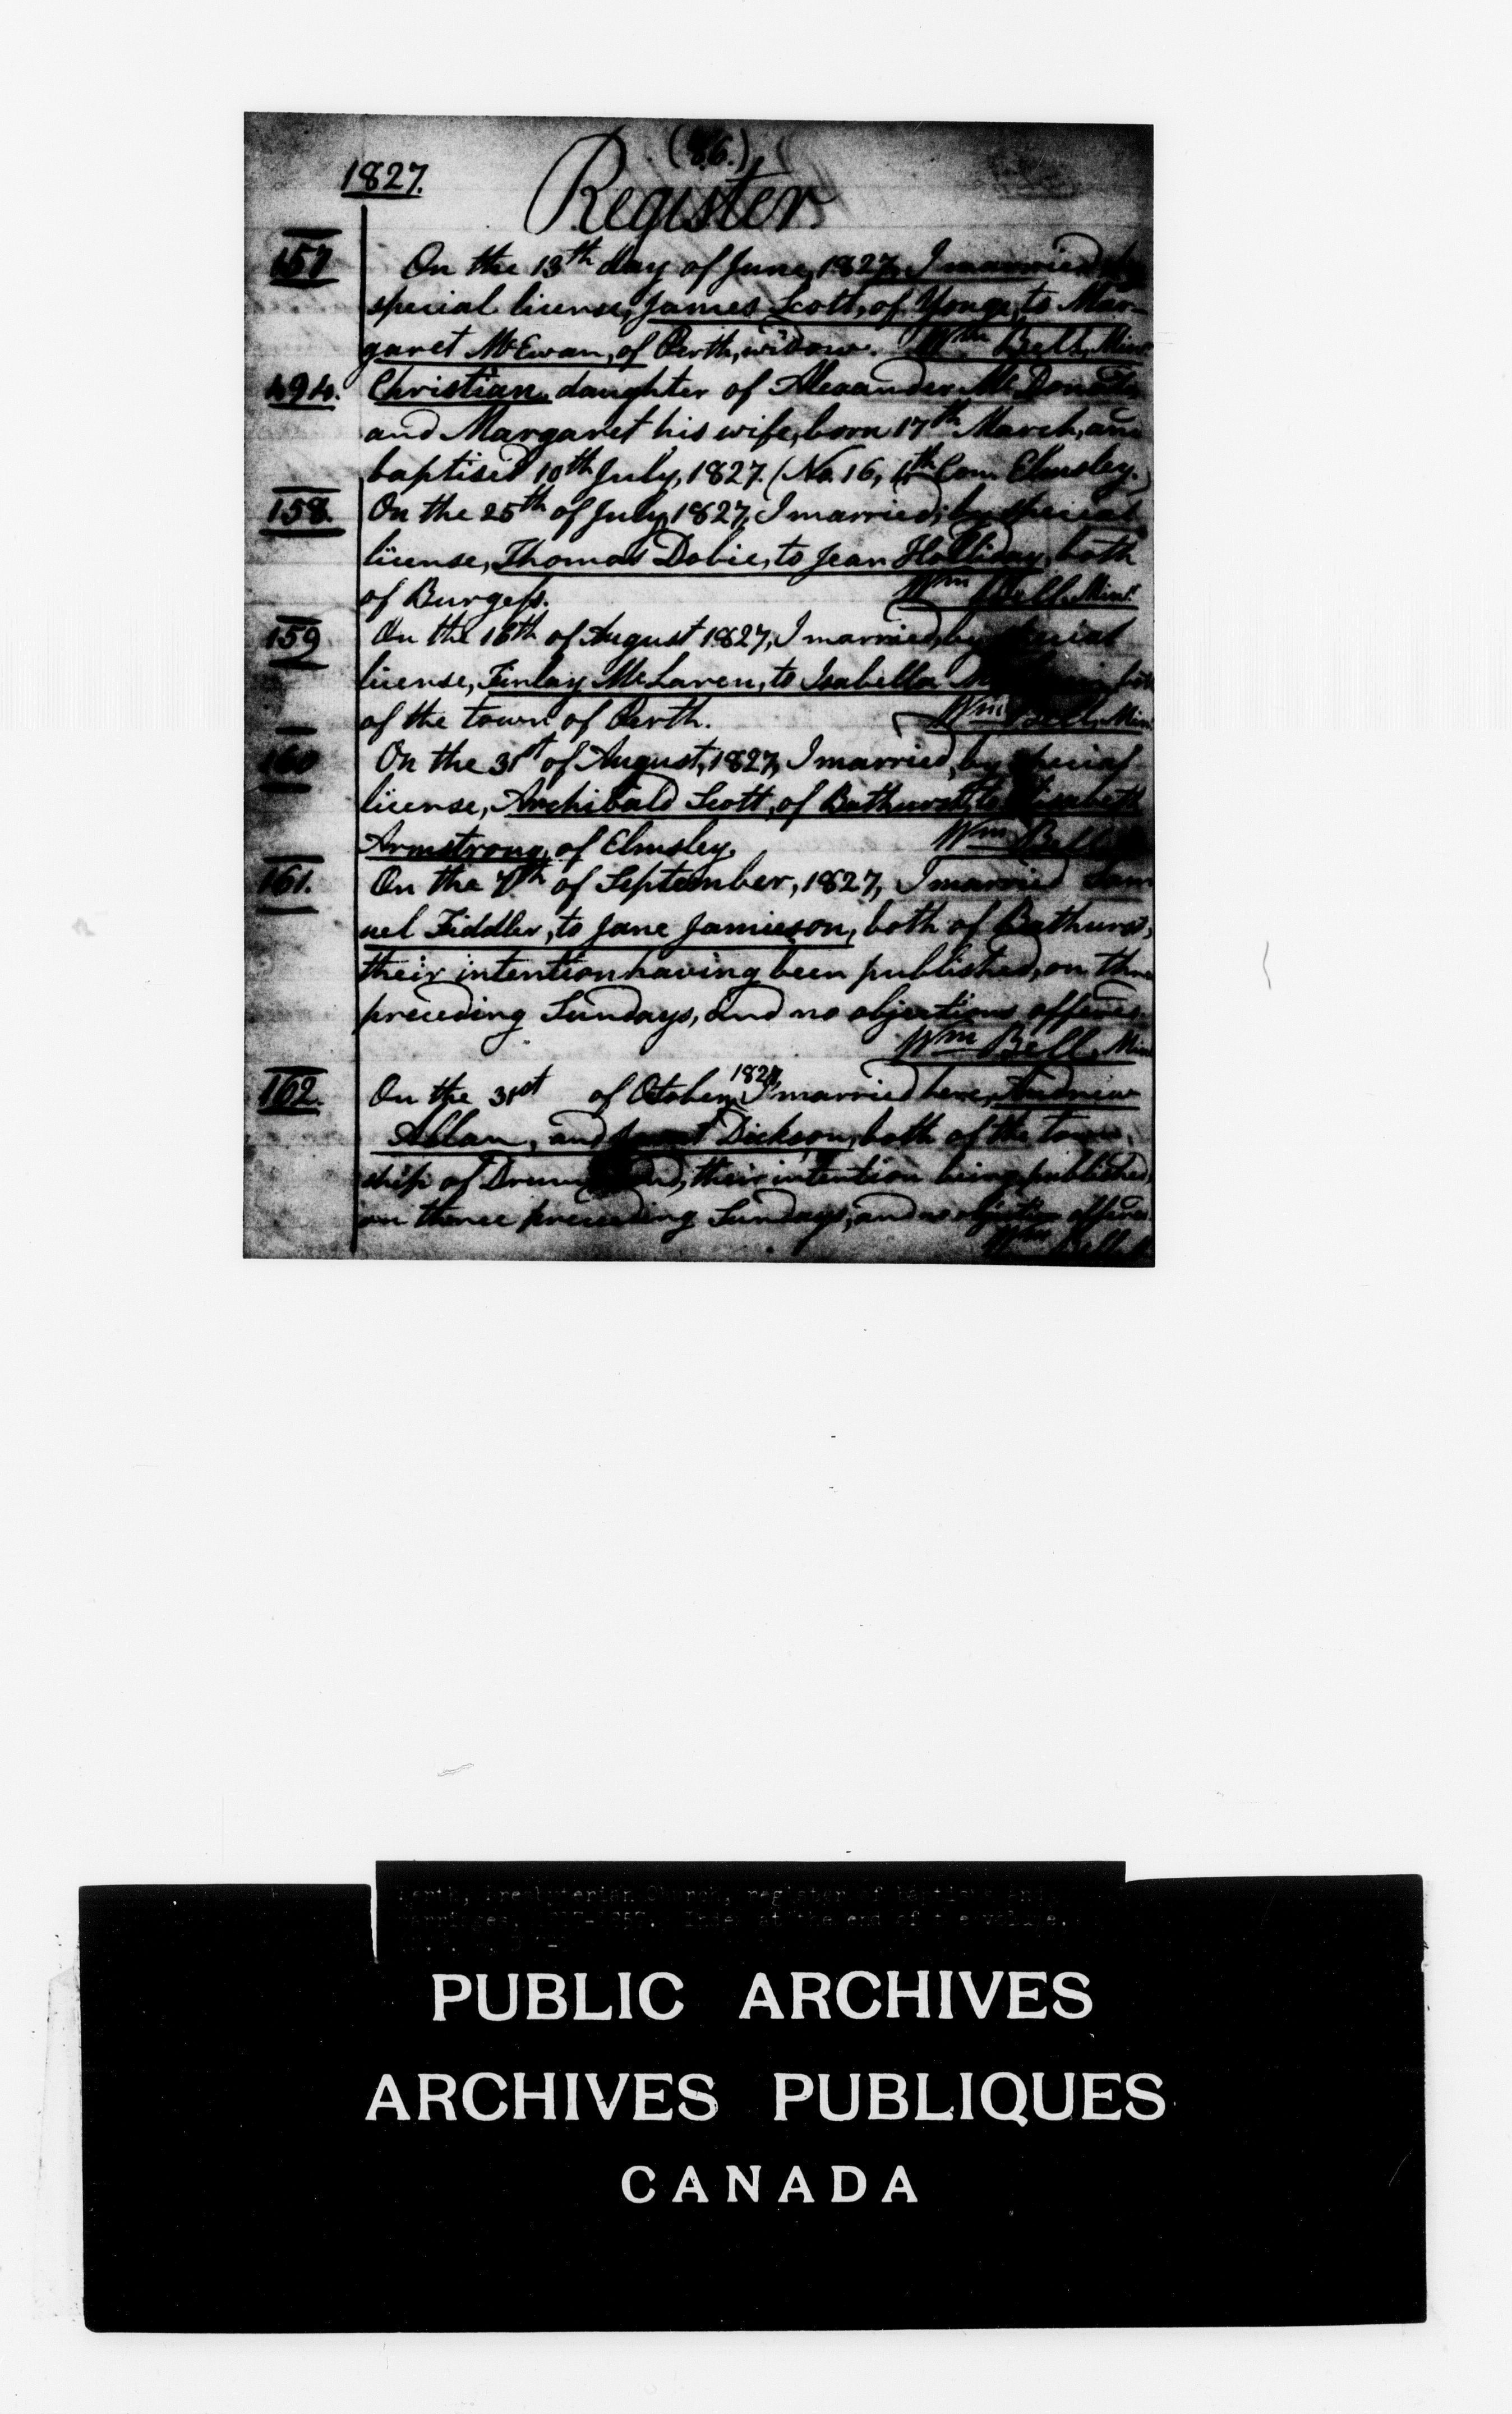 (86.)
1827.
Register.
157 On the 13th day of June, 1827, I married by
special license, James Scott, of Yonge, to Mar-
garet McEwan, of Perth, widow. Wm Bell, Minr
494. Christian, daughter of Alexander McDonald,
and Margaret his wife, born 17th March, and
baptised 10th July, 1827. (No. 16, Con. Elmsley.)
158. On the 25th of July, 1827, I married, by special
license, Thomas Dobie, to Jean Holliday, both
of Burgess. Wm Bell, Minr.
159 On the 16th of August 1827, I married, by special
license, Finlay McLaren, to Isabella both
of the town of Perth. Wm Bell, Min
160 On the 31st of August, 1827, I married, by special
license, Archibald Scott, of Bathurst, to Elisabeth
Armstrong, of Elmsley. Wm Bell
161. On the 7th of September, 1827, I married Sam-
uel Fiddler, to Jane Jamieson, both of Bathurst,
their intention having been published, on three
preceding Sundays, and no objections offered.
Wm Bell, Min
162. On the 31st of October, 1827, I married here, Andrew
Allan, and Janet Dickson, both of the town-
ship of Drummond, their intention being published,
on three preceding Sundays, and no objection offered.
Wm Bell
Perth, Presbyterian Church, register of baptisms and
marriages, Index at the end of the volume.
PUBLIC ARCHIVES
ARCHIVES PUBLIQUES
CANADA